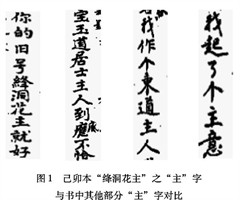 你的旧号絳洞花主就好
宝玉道居士主人到應不恰
底
我作个東道主人
我起了个主意
图1 己卯本“絳洞花主”之“主”字
与书中其他部分“主”字对比